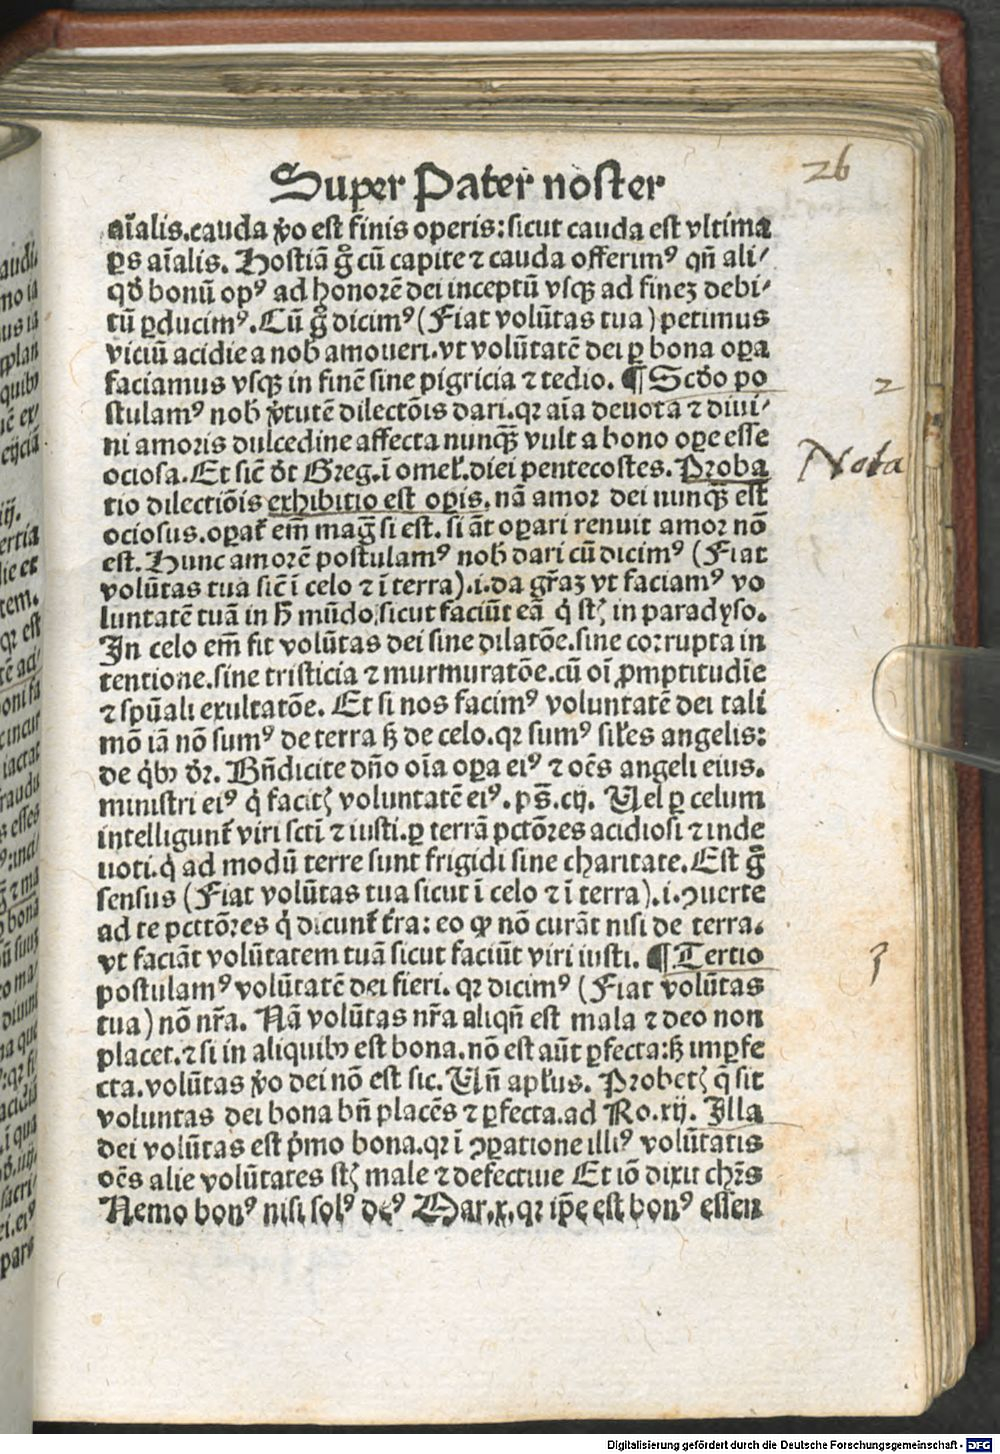 Super Pater noster
26
aĩalis.cauda ꝟo est finis operis:sicut cauda est vltima
ꝑs aĩalis. Hostiã gͦ cũ capite ⁊ cauda offerimꝰ qñ ali/
qđ bonũ opꝰ ad honorẽ dei inceptũ vsqꝫ ad fineꝫ debi/
tũ ꝑducimꝰ.Cũ gͦ dicimꝰ (Fiat volũtas tua) petimus
viciũ acidie a nob̃ amoueri.vt volũtatẽ dei ꝑ bona oꝑa
faciamus vsqꝫ in finẽ sine pigricia ⁊ tedio. ¶ Scđo po
2
stulamꝰ nob̃ ꝟtutẽ dilectõis dari.qꝛ aĩa deuota ⁊ diui/
ni amoris dulcedine affecta nunqꝫ̃ vult a bono oꝑe esse
ociosa.Et sic̃ đt Greg.ĩ omel̃.diei pentecostes. Proba
Nota
tio dilectiõis exhibitio est oꝑis. nã amor dei nunqꝫ̃ est
ociosus.oꝑat̃ em̃ mag̃ si est.si ãt oꝑari renuit amor nõ
est.Hunc amorẽ postulamꝰ nob̃ dari cũ dicimꝰ (Fiat
volũtas tua sic̃ ĩ celo ⁊ ĩ terra).i.da gr̃aꝫ vt faciamꝰ vo
luntatẽ tuã in h̃ mũdo,sicut faciũt eã q̇ stꝫ̃ in paradyso.
In celo em̃ fit volũtas dei sine dilatõe.sine corrupta in
tentione.sine tristicia ⁊ murmuratõe.cũ oĩ ꝓmptitudĩe
⁊ spũali exultatõe. Et si nos facimꝰ voluntatẽ dei tali
mõ iã nõ sumꝰ de terra sꝫ de celo.qꝛ sumꝰ sil̃es angelis:
de q̇bꝰ đr. Bñdicite dño oĩa oꝑa eiꝰ ⁊ oẽs angeli eius.
ministri eiꝰ q̇ facitꝫ voluntatẽ eiꝰ. ps̃.cij. Uel ꝑ celum
intelligunt̃ viri scti̇̃ ⁊ iusti.ꝑ terrã pctõres acidiosi ⁊ inde
uoti.q̇ ad modũ terre sunt frigidi sine charitate.Est g̃
sensus (Fiat volũtas tua sicut ĩ celo ⁊ ĩ terra).i.ꝯuerte
ad te pctõres q̇ dicunt̃ t̃ra: eo ꝙ nõ curãt nisi de terra.
vt faciãt volũtatem tuã sicut faciũt viri iusti. ¶ Tertio
3
postulamꝰ volũtatẽ dei fieri. qꝛ dicimꝰ (Fiat volũtas
tua) nõ nr̃a. Nã volũtas nr̃a aliqñ est mala ⁊ deo non
placet.⁊ si in aliquibꝰ est bona.nõ est aũt ꝑfecta:sꝫ imꝑfe
cta.volũtas ꝟo dei nõ est sic. Uñ apl̃us. Probetꝫ q̃ sit
voluntas dei bona bñ placẽs ⁊ ꝑfecta.ad Ro.xij. Illa
dei volũtas est p̃mo bona.qꝛ ĩ ꝯꝑatione illiꝰ volũtatis
oẽs alie volũtates stꝫ male ⁊ defectiue Et iõ dixit chr̃s
Nemo bonꝰ nisi solꝰ deꝰ Mar.x.qꝛ ip̃e est bonꝰ essen
Digitalisierung gefördert durch die Deutsche Forschungsgemeinschaft - DFG